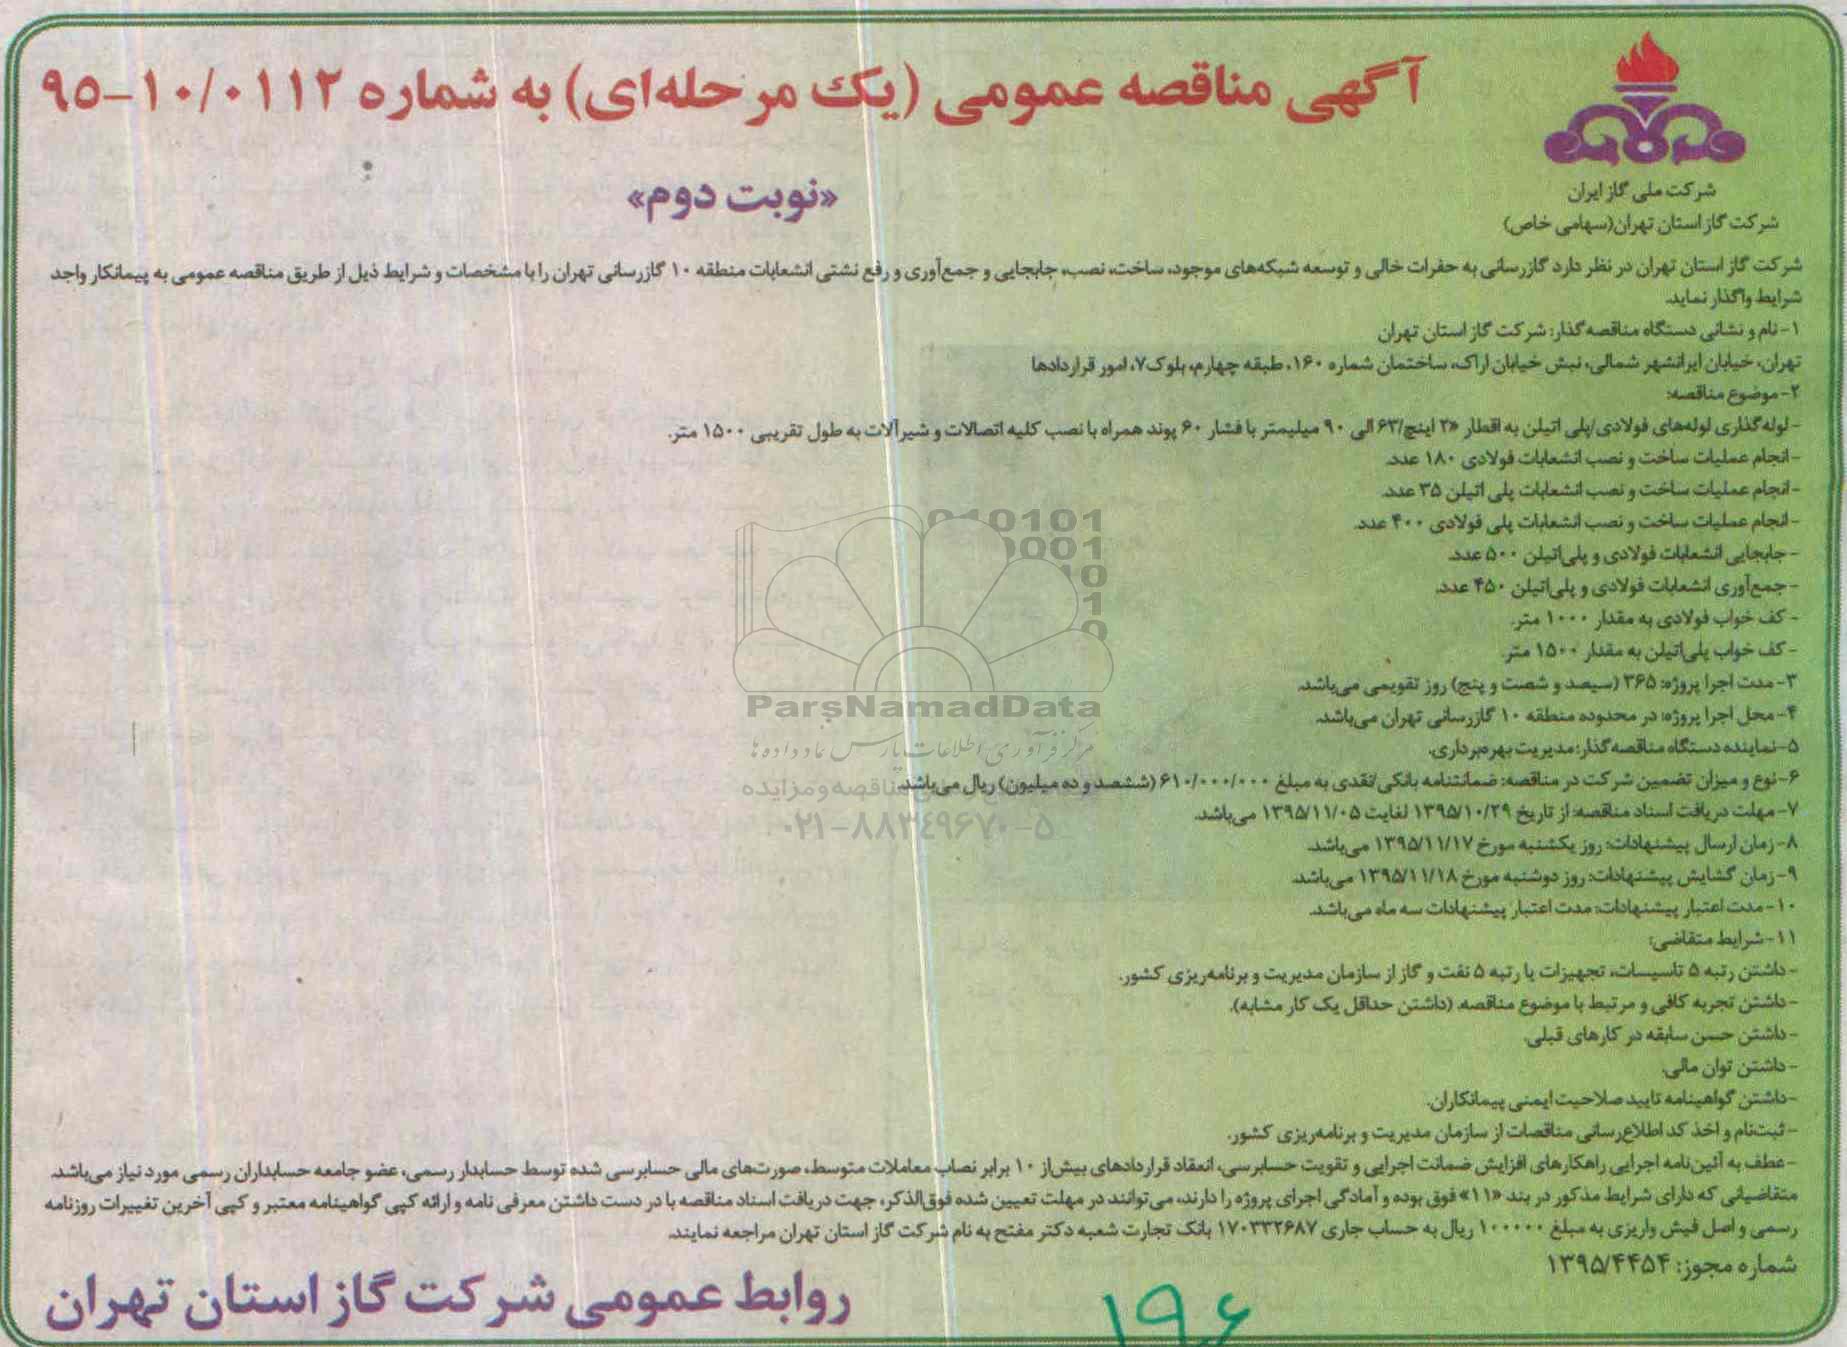 آگهی مناقصه عمومی (یک مرحله‌ای) به شماره ۱۰/۰۱۱۲-۹۵
«نوبت دوم»
شرکت ملی گاز ایران
شرکت گاز استان تهران(سهامی خاص)
شرکت گاز استان تهران در نظر دارد گازرسانی به حفرات خالی و توسعه شبکه‌های موجود، ساخت، نصب، جابجایی و جمع‌آوری و رفع نشتی انشعابات منطقه ۱۰ گازرسانی تهران را با مشخصات و شرایط ذیل از طریق مناقصه عمومی به پیمانکار واجد
شرایط واگذار نماید.
۱- نام و نشانی دستگاه مناقصه‌گذار: شرکت گاز استان تهران
تهران، خیابان ایرانشهر شمالی، نبش خیابان اراک، ساختمان شماره ۱۶۰، طبقه چهارم، بلوک۷، امور قراردادها
۲- موضوع مناقصه:
- لوله‌گذاری لوله‌های فولادی/پلی اتیلن به اقطار «۲ اینچ/۶۳ الی ۹۰ میلیمتر با فشار ۶۰ پوند همراه با نصب کلیه اتصالات و شیرآلات به طول تقریبی ۱۵۰۰ متر.
-انجام عملیات ساخت و نصب انشعابات فولادی ۱۸۰ عدد.
-انجام عملیات ساخت و نصب انشعابات پلی اتیلن ۳۵ عدد.
-انجام عملیات ساخت و نصب انشعابات پلی فولادی ۴۰۰ عدد.
- جابجایی انشعابات فولادی و پلی‌اتیلن ۵۰۰ عدد.
-جمع‌آوری انشعابات فولادی و پلی‌اتیلن ۴۵۰ عدد.
- کف خواب فولادی به مقدار ۱۰۰۰ متر.
- کف خواب پلی‌اتیلن به مقدار ۱۵۰۰ متر.
۳- مدت اجرا پروژه: ۳۶۵ (سیصد و شصت و پنج) روز تقویمی می‌باشد.
۴- محل اجرا پروژه: در محدوده منطقه ۱۰ گازرسانی تهران می‌باشد.
۵-نماینده دستگاه مناقصه‌گذار: مدیریت بهره‌برداری.
۶-نوع و میزان تضمین شرکت در مناقصه: ضمانتنامه بانکی/نقدی به مبلغ ۶۱۰/۰۰۰/۰۰۰ (ششصد و ده میلیون) ریال می‌باشد.
۷- مهلت دریافت اسناد مناقصه: از تاریخ ۱۳۹۵/۱۰/۲۹ لغایت ۱۳۹۵/۱۱/۰۵ می‌باشد.
۸- زمان ارسال پیشنهادات: روز یکشنبه مورخ ۱۳۹۵/۱۱/۱۷ می‌باشد.
۹- زمان گشایش پیشنهادات: روز دوشنبه مورخ ۱۳۹۵/۱۱/۱۸ می‌باشد.
۱۰-مدت اعتبار پیشنهادات: مدت اعتبار پیشنهادات سه ماه می‌باشد.
۱۱-شرایط متقاضی:
- داشتن رتبه ۵ تاسیسات، تجهیزات یا رتبه ۵ نفت و گاز از سازمان مدیریت و برنامه‌ریزی کشور.
-داشتن تجربه کافی و مرتبط با موضوع مناقصه. (داشتن حداقل یک کار مشابه).
- داشتن حسن سابقه در کارهای قبلی.
- داشتن توان مالی.
-داشتن گواهینامه تایید صلاحیت ایمنی پیمانکاران.
- ثبت‌نام و اخذ کد اطلاع‌رسانی مناقصات از سازمان مدیریت و برنامه‌ریزی کشور.
-عطف به آئین‌نامه اجرایی راهکارهای افزایش ضمانت اجرایی و تقویت حسابرسی، انعقاد قراردادهای بیش‌از ۱۰ برابر نصاب معاملات متوسط، صورت‌های مالی حسابرسی شده توسط حسابدار رسمی، عضو جامعه حسابداران رسمی مورد نیاز می‌باشد.
متقاضیانی که دارای شرایط مذکور در بند «۱۱» فوق بوده و آمادگی اجرای پروژه را دارند، می‌توانند در مهلت تعیین شده فوق‌الذکر، جهت دریافت اسناد مناقصه با در دست داشتن معرفی نامه و ارائه کپی گواهینامه معتبر و کپی آخرین تغییرات روزنامه
رسمی و اصل فیش واریزی به مبلغ ۱۰۰۰۰۰ ریال به حساب جاری ۱۷۰۳۳۲۶۸۷ بانک تجارت شعبه دکتر مفتح به نام شرکت گاز استان تهران مراجعه نمایند.
شماره مجوز: ۱۳۹۵/۴۴۵۴
روابط عمومی شرکت گاز استان تهران
۱۹۶
ParsNamadData
مرکز فرآوری اطلاعات پارس نماد داده ها
مناقصه و مزایده
۰۲۱-۸۸۳۴۹۶۷۰-۵